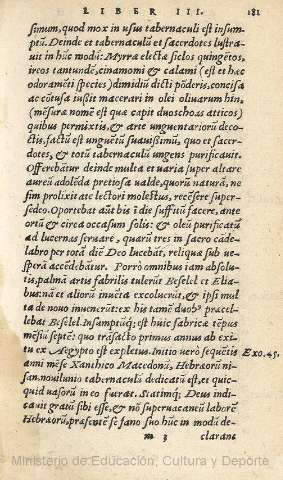 LIBER III. 181
simum, quod mox in usus tabernaculi est insum-
ptū. Deinde et tabernaculū et sacerdotes lustra-
uit in hūc modū: Myrræ electæ siclos quingētos,
ireos tantundē, cinamomi & calami (est et hæc
odoramēti species) dimidiū dicti pōderis, concisa
ac cōtusa iußit macerari in oleo oliuarum hin,
(mēsuræ nomē est quæ capit duos choas atticos)
quibus permixtis, & arte unguentariorū deco-
ctis, factū est unguētū suauißimū, quo et sacer-
dotes, & totū tabernaculū ungens purificauit.
Offerebātur deinde multa et uaria super altare
aureū adolēda pretiosa ualde, quorū naturā, ne
sim prolixit ate lectori molestus, recēsere super-
sedeo. Oportebat aūt bis ī die suffitū facere, ante
ortū & circa occasum solis: & oleū purificatū
ad lucernas seruare, quarū tres in sacro cāde-
labro per totā diē Deo lucebāt, reliquæ sub ue-
sperā accēdebātur. Porrò omnibus iam absolu-
tis, palmā artis fabrilis tulerūt Beselel et Elia-
bus: nā et aliorū inuēta excoluerūt, & ipsi mul
ta de nouo inuenerūt: ex his tamē duobꝰ præcel-
lebat Beselel. Insumptūqꝫ est huic fabricæ tēpus
mēsiū septē: quo trāsacto primus annus ab exi-
tu ex Aegypto est expletus. Initio uerò sequētis
anni mēse Xanthico Macedonū, Hebræorū ni-
san, nouilunio tabernaculū dedicatū est, et quic-
quid uasorū in eo fuerat. Statimqꝫ Deus indi-
cauit gratū sibi esse, & nō superuacaneū laborē
Hebræorū, præsentē se fano suo hūc in modū de-
Exo. 45.
m 3 claranc
Ministerio de Educación, Cultura y Deporte